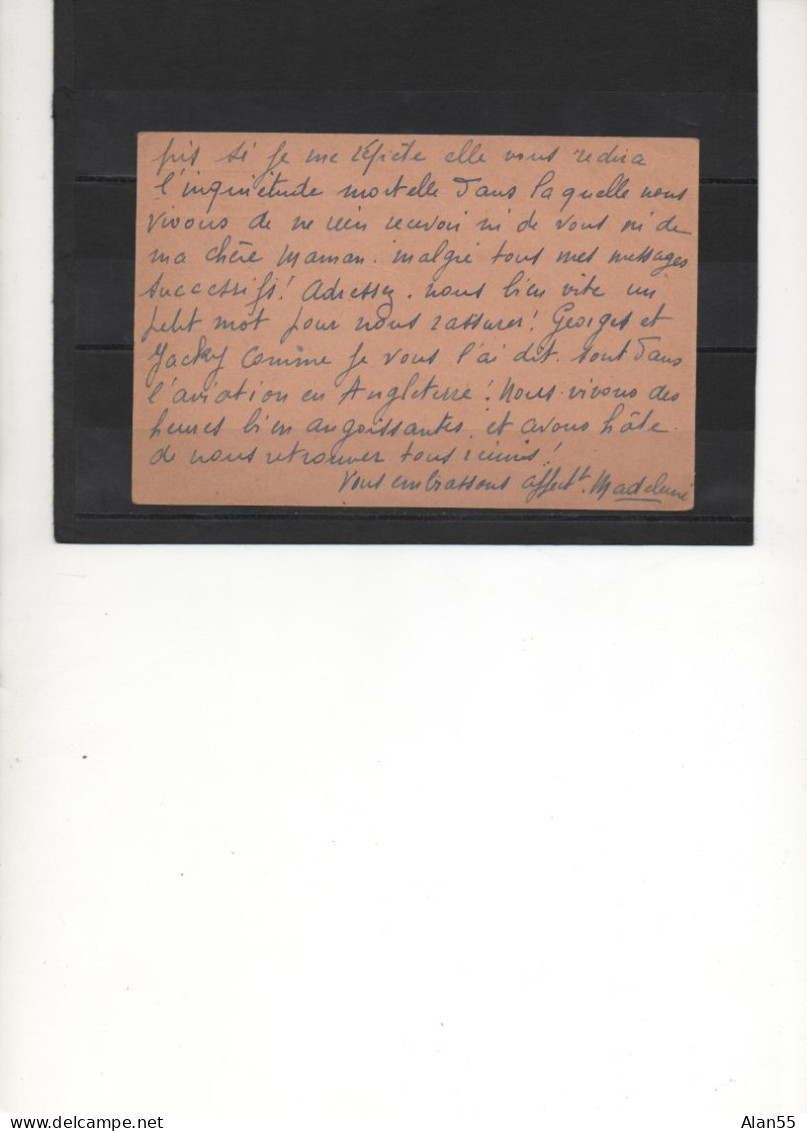 pis si je me répète elle vous redira
l'inquiétude mortelle dans laquelle nous
vivons de ne rien recevoir ni de vous ni de
ma chère Maman. malgré tous mes messages
successifs! Adressez. nous bien vite un
petit mot pour nous rassurer! Georges et
Jacky comme je vous l'ai dit. sont dans
l'aviation en Angleterre! Nous vivons des
heures bien angoissantes. et avons hâte.
de nous retrouver tous réunis!
Vous embrassons affectt. Madeleine
Alan55